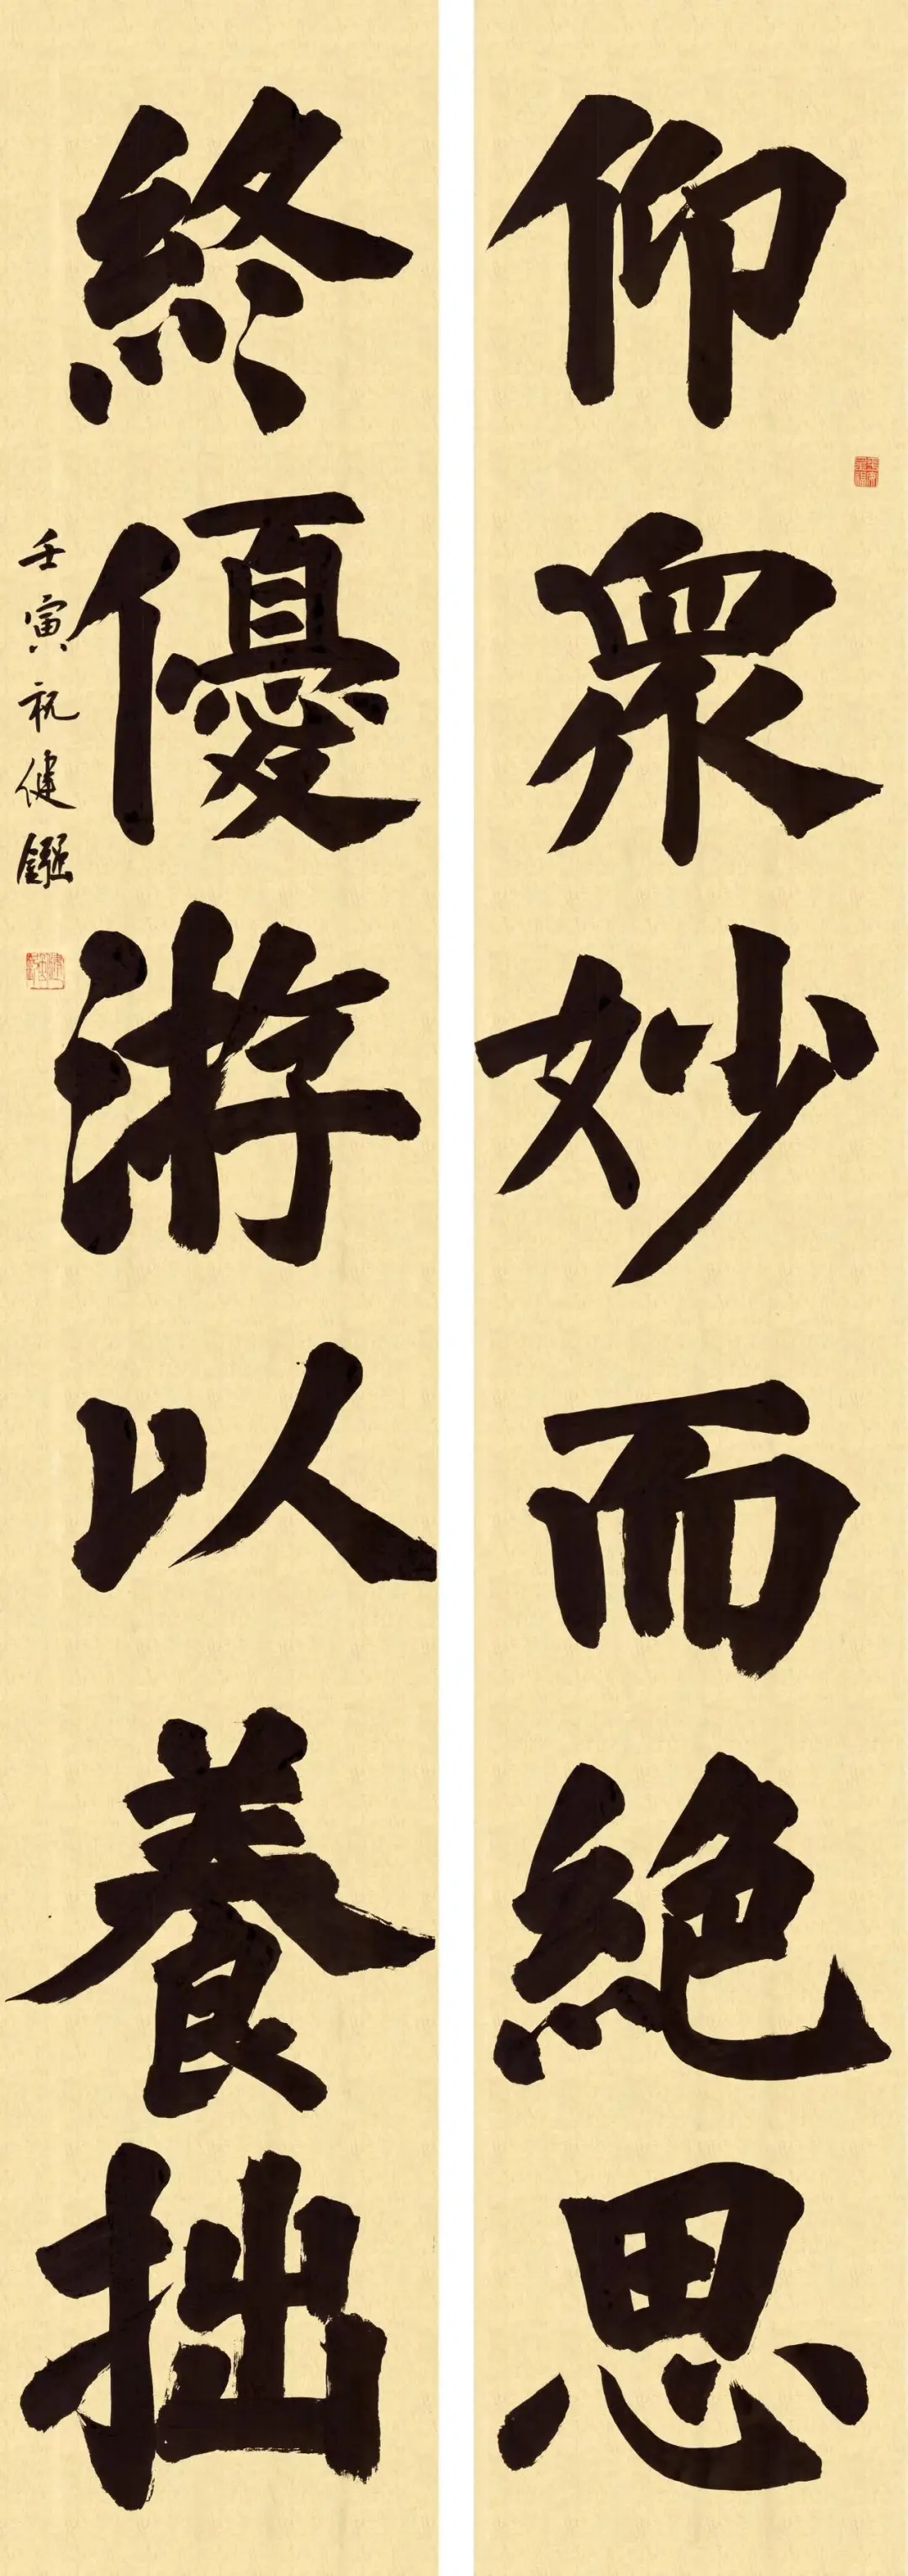 仰眾妙而絕思
終優游以養拙
壬寅祝健